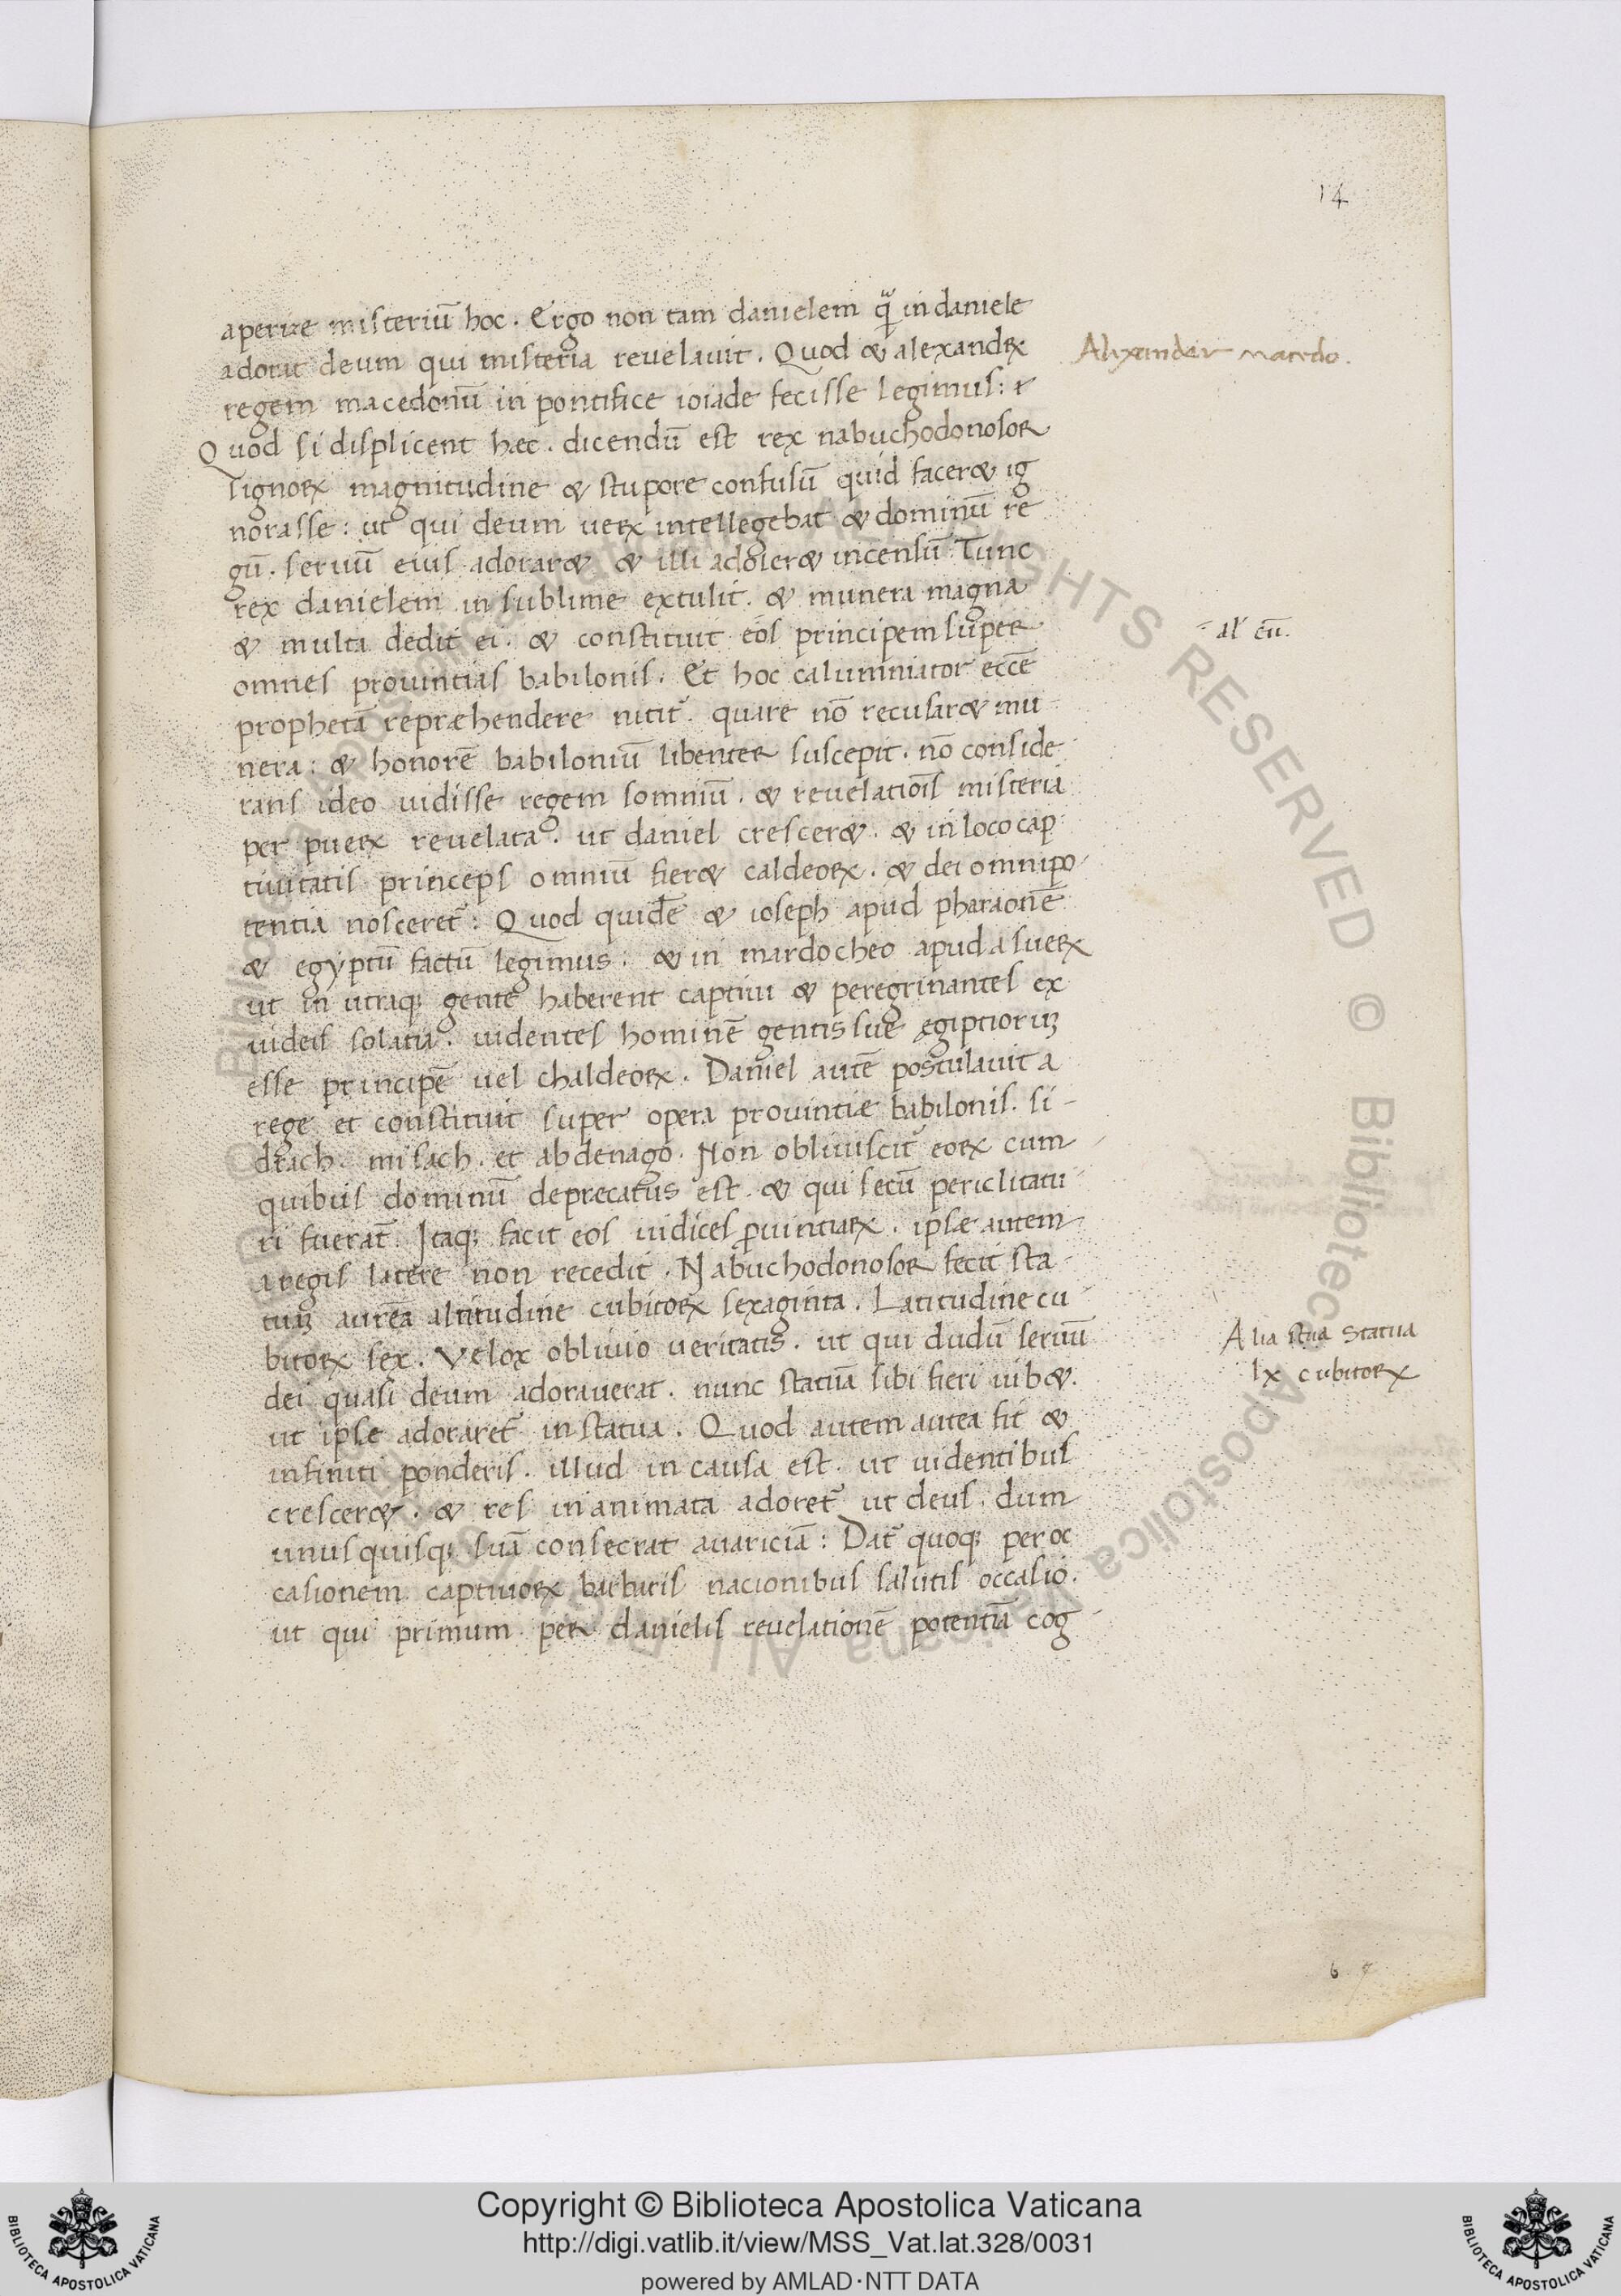 14
aperire misteriū hoc. Ergo non tam danielem q̄ in daniele
adorat deum qui misteria reuelauit. Quod & alexandrꝝ
Alexander macedo.
regem macedonū in pontifice ioiade fecisse legimus:
Quod si displicent hec. dicendū est rex nabuchodonosor
signorꝝ magnitudine & stupore confusū quid facer& ig
norasse: ut qui deum uerꝝ intellegebat & dominū re
gū. seruū eius adorar& & illi adoler& incensū Tunc
rex danielem in sublime extulit. & munera magna
& multa dedit ei. & constituit eos principem super
al' eū.
omnes prouintias babilonis. Et hoc calumniator eccē
prophetā repræhendere nitit̄. quare nō recusar& mu
nera: & honorē babiloniū libenter suscepit. nō conside
rans ideo uidisse regem somniū. & reuelatiōis misteria
per puerꝝ reuelata. ut daniel crescer&. & in loco cap
tiuitatis princeps omniū fier& caldeorꝝ. & dei omnipo
tentia nosceret̄: Quod quidē & ioseph apud pharaonē
& egyptū factū legimus. & in mardocheo apud asuerꝝ
ut in utraq; gente haberent captiui & peregrinantes ex
iudeis solatia. uidentes hominē gentis sue ęgiptiorūm
esse principē uel chaldeorꝝ. Daniel autē postulauit a
rege et constituit super opera prouintiæ babilonis. si
drach. misach. et abdenago. Non obliuiscit̄ eorꝝ cum
quibus dominū deprecatus est. & qui secū periclitatu
ri fuerāt. Itaq; facit eos iudices ꝓuintiarꝝ. ipse autem
a regis latere non recedit. Nabuchodonosor fecit sta
tuaꝫ aureā altitudine cubitorꝝ sexaginta. Latitudine cu
bitorꝝ sex. Velox obliuio ueritatis. ut qui dudū seruū
Alia statua
lx cubitorꝝ
dei quasi deum adorauerat. nunc statuā sibi fieri iub&.
ut ipse adoraret̄ in statua. Quod autem aurea fit &
infiniti ponderis. illud in causa est. ut uidentibus
crescer&. & res inanimata adoret̄ ut deus. dum
unusquisq; suā consecrat auariciā: Dat̄ quoq; per oc
casionem captiuorꝝ barbaris nacionibus salutis occasio.
ut qui primum per danielis reuelationē potentiā cog
6 7
BIBLIOTECA APOSTOLICA VATICANA
Copyright © Biblioteca Apostolica Vaticana
http://digi.vatlib.it/view/MSS_Vat.lat.328/0031
powered by AMLAD·NTT DATA
BIBLIOTECA APOSTOLICA VATICANA